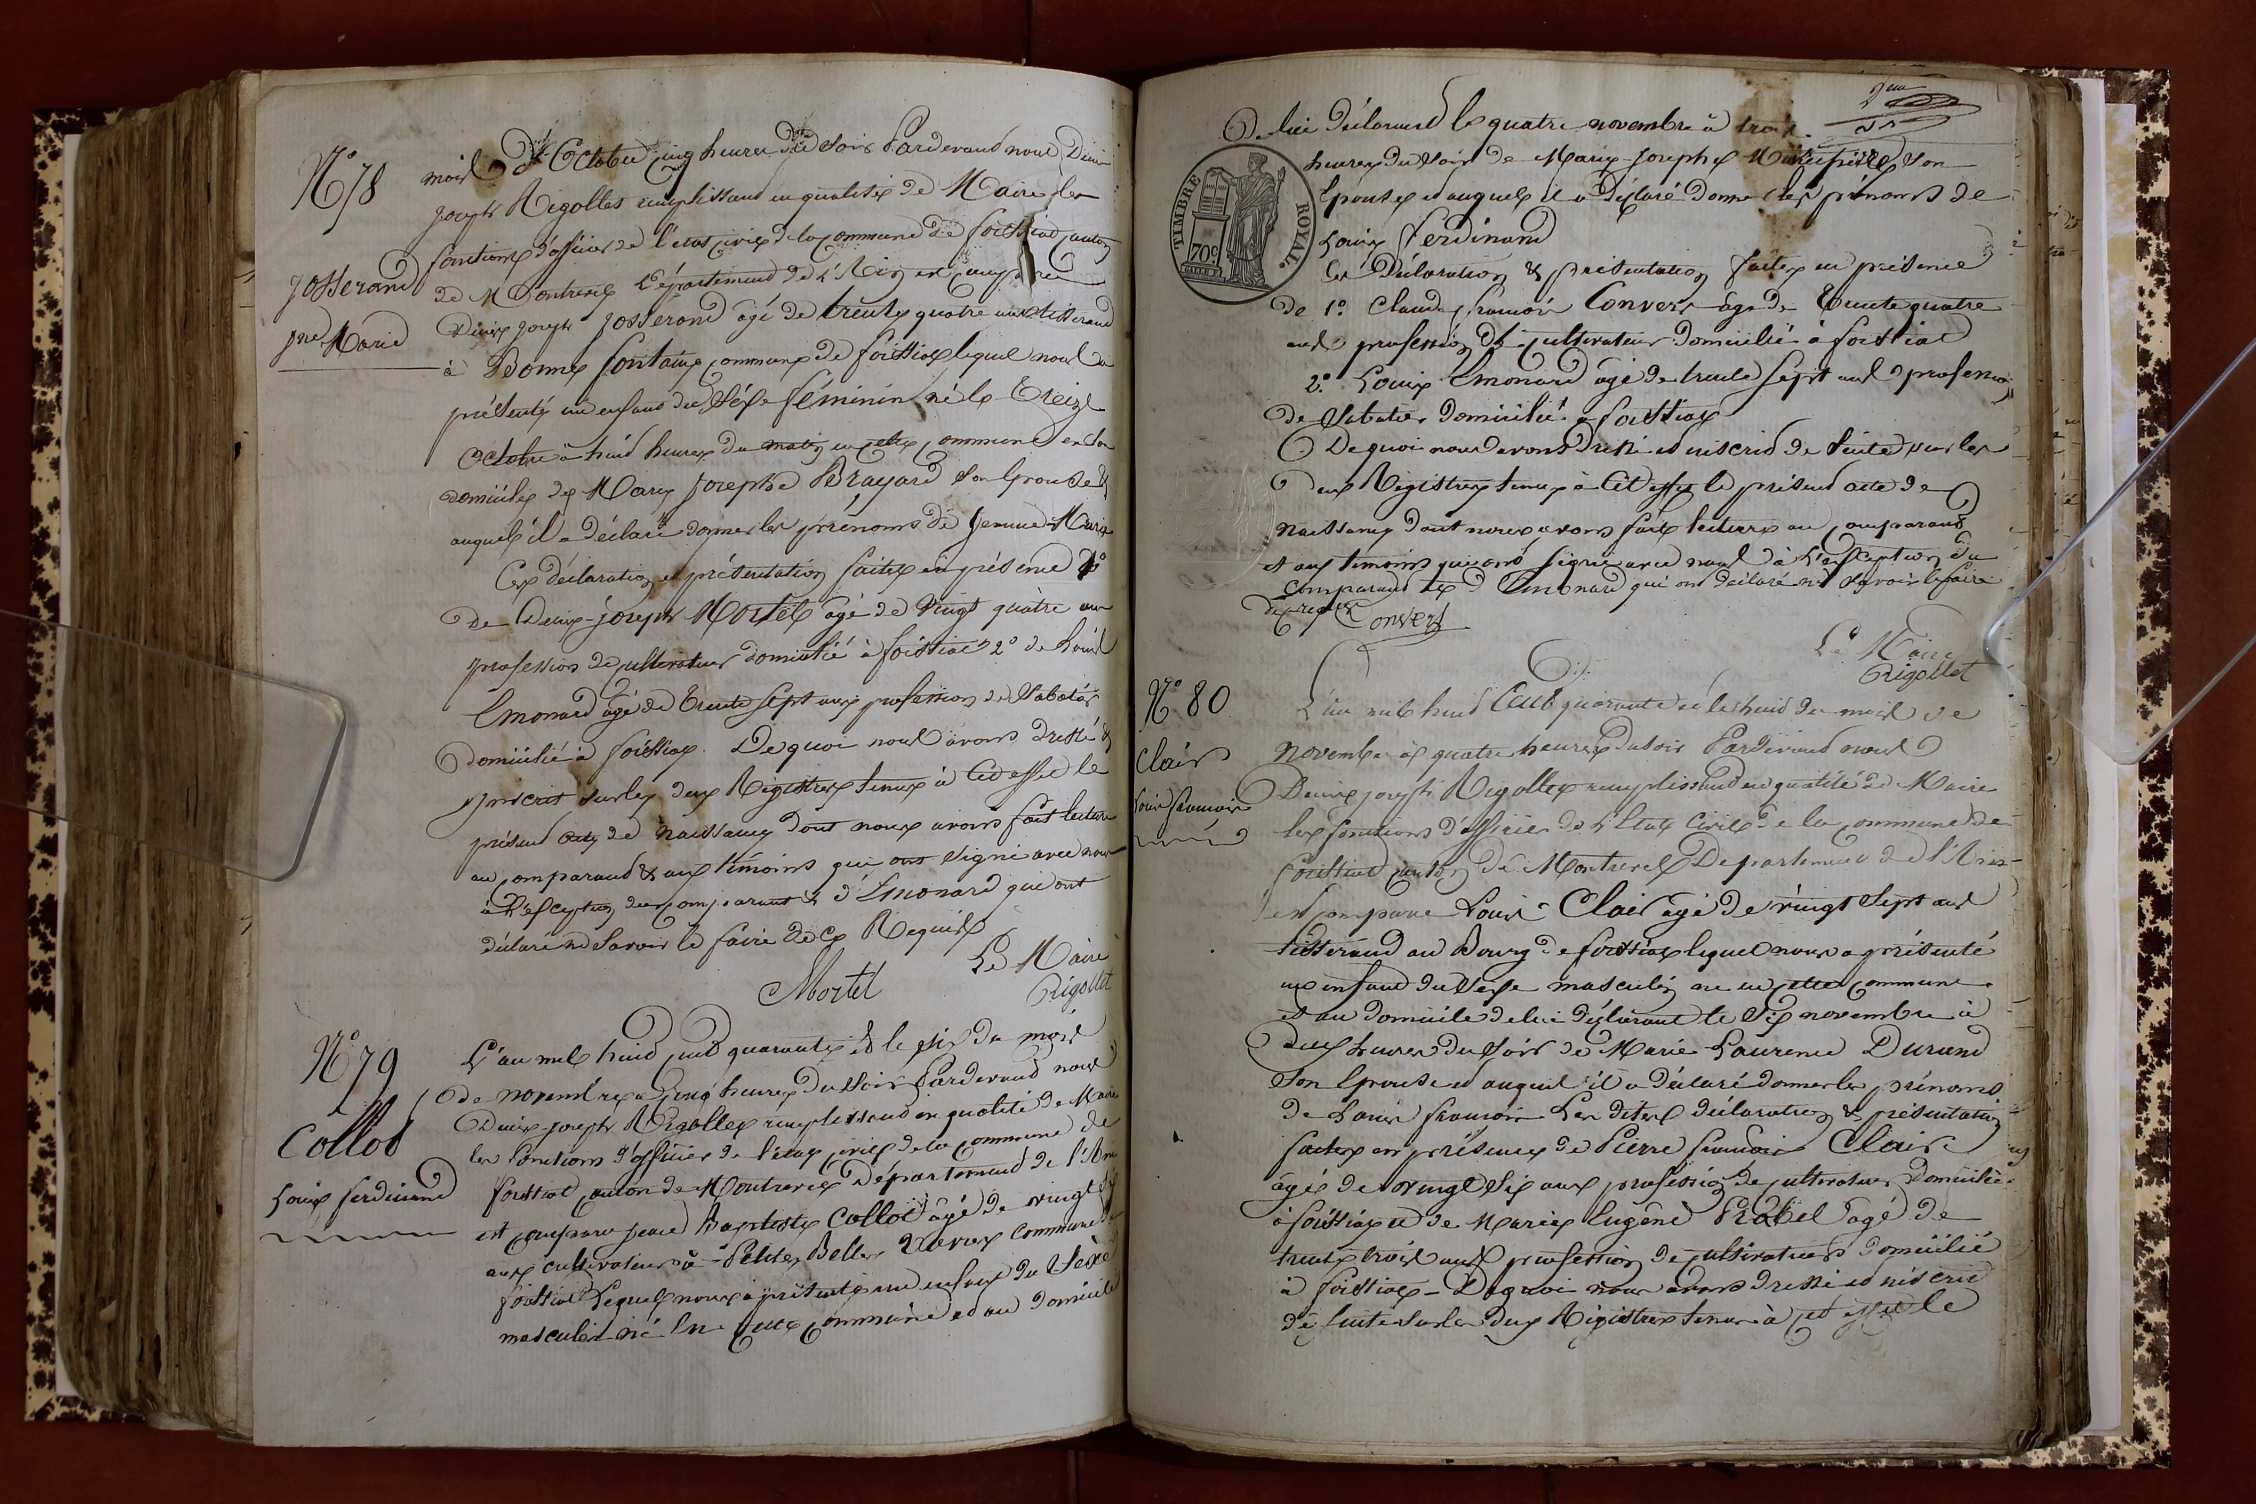 N° 78
Josserand
Jne Marie
mois d'Octobre cinq heures du Soir Pardevant nous Denis
Joseph Rigollet remplissant en qualité de Maire les
fonctions d'officier de l'état civil de la commune de foissiat canton
de Montrevel Département de l'Ain est comparu
Denis Joseph Josserand agé de trente quatre ans tisserand
à Bonne fontaine commune de foissiat lequel nous a
présenté un enfant du Sexe féminin né le Treize
Octobre à huit heures du matin en cette commune en son
domicile de Marie Josephe Brayard Son Epouse &
auquel il a déclaré donner les prénoms de Jeanne Marie
Ces déclaration et présentation faites en présence 1°
de Denis-Joseph Mortel agé de Vingt quatre ans
profession de cultivateur domicilié à foissiat 2° de Louis
Emonard agé de Trente Sept ans profession de Sabotier
domicilié à foissiat. De quoi nous avons dressé &
inscrit sur les deux Registres tenus à cet effet le
présent acte de naissance dont nous avons fait lecture
au comparant & aux témoins qui ont signé avec nous
à l'exception du comparant & d'Emonard qui ont
déclaré ne Savoir le faire de ce Requis
Mortel
Le Maire
Rigollet
N° 79
Collod
Louis ferdinand
L'an mil huit cent quarante & le six du mois
de novembre à cinq heures du Soir Pardevant nous
Denis-Joseph Rigollet remplissant en qualité de Maire
les fonctions d'officier de l'état civil de la commune de
foissiat canton de Montrevel Département de l'Ain
est comparu Jean Baptiste Collod agé de vingt six
ans cultivateur à Petites Belles commune de
foissiat Lequel nous a présenté un enfant du Sexe
masculin né En cette commune et au domicile
De lui déclarant le quatre novembre à trois
heures du Soir de Marie Josephe Son
Epouse et auquel il a déclaré donner les prénoms de
Louis ferdinand
TIMBRE ROYAL
70c
Les Déclaration & présentation faites en présence
de 1° Claude françois Convers agé de Trente quatre
ans profession de cultivateur domicilié à foissiat
2° Louis Emonard agé de trente Sept ans profession
de Sabotier domicilié à foissiat
De quoi nous avons dressé et inscrit de Suite Sur les
deux Registres tenus à cet effet le présent acte de
naissance dont nous avons fait lecture au comparant
et aux témoins qui ont signé avec nous à l'exception du
comparant & d'Emonard qui ont déclaré ne Savoir le faire
de ce requis
Convers
Le Maire
Rigollet
N° 80
Clair
Louis françois
L'an mil huit Cent quarante et le huit du mois de
novembre à quatre heures du soir Pardevant nous
Denis Joseph Rigollet remplissant en qualité de Maire
les fonctions d'officier de l'Etat Civil de la commune de
foissiat canton de Montrevel Département de l'Ain
est comparu Louis Clair agé de vingt Sept ans
tisserand au Bourg de foissiat lequel nous a présenté
un enfant du Sexe masculin né en cette commune
et au domicile de lui déclarant le Six novembre à
deux heures du soir de Marie Laurence Durand
Son Epouse et auquel il a déclaré donner les prénoms
de Louis françois Les dites déclaration & présentation
faites en présence de Pierre françois Clair
agé de vingt Six ans profession de cultivateur domicilié
à foissiat et de Marie Eugène agé de
trente trois ans profession de cultivateur domicilié
à foissiat - De quoi nous avons dressé et inscrit
de Suite Sur les deux Registres tenus à cet effet le